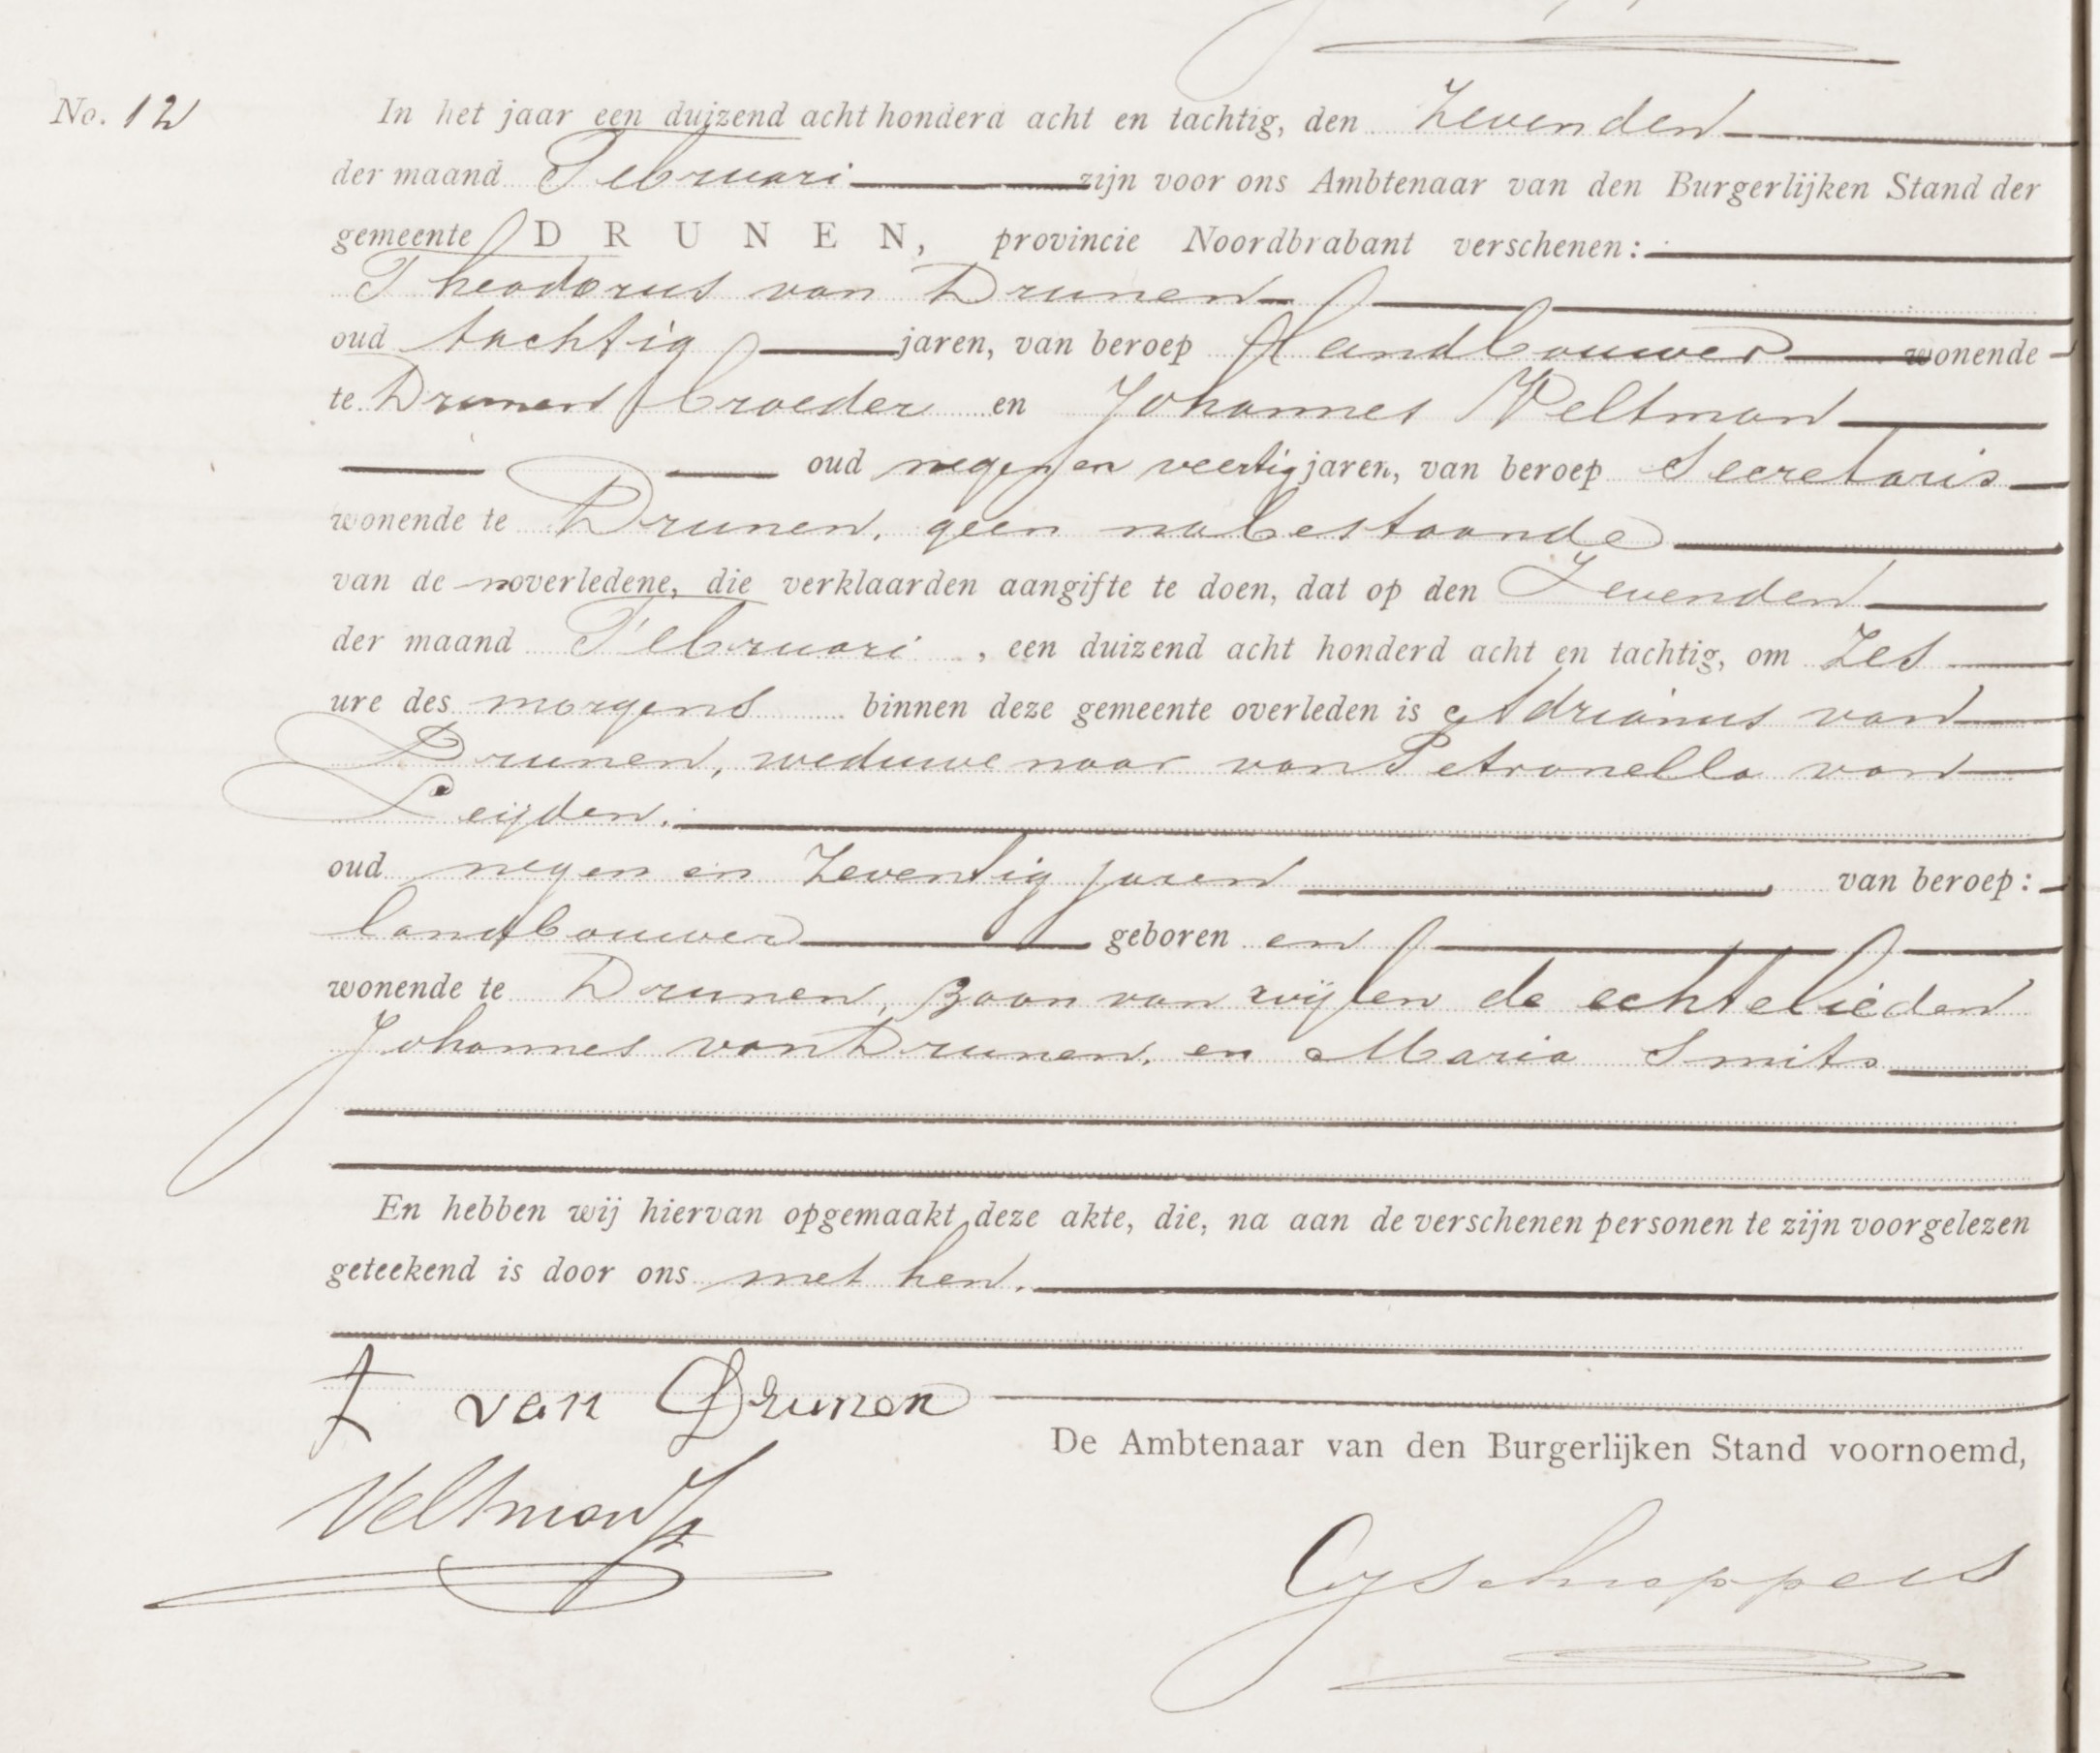 No. 12
In het jaar een duizend acht honderd acht en tachtig, den Zevenden
der maand Februari zijn voor ons Ambtenaar van den Burgerlijken Stand der
gemeente DRUNEN, provincie Noordbrabant verschenen:
Theodorus van Drunen
oud tachtig jaren, van beroep Landbouwer wonende
te Drunen broeder en Johannes Veltman
oud negen en veertig jaren, van beroep Secretaris
wonende te Drunen, geen nabestaande
van de noverledene, die verklaarden aangifte te doen, dat op den Zevenden
der maand Februari, een duizend acht honderd acht en tachtig, om Zes
ure des morgens binnen deze gemeente overleden is Adrianus van
Drunen, weduwenaar van Petronella van
Leijden.
oud negen en Zeventig jaren van beroep:
landbouwer geboren en
wonende te Drunen, zoon van wijlen de echtelieden
Johannes van Drunen, en Maria Smits
En hebben wij hiervan opgemaakt deze akte, die, na aan de verschenen personen te zijn voorgelezen
geteekend is door ons met hen.
T van Drunen
De Ambtenaar van den Burgerlijken Stand voornoemd,
Veltman